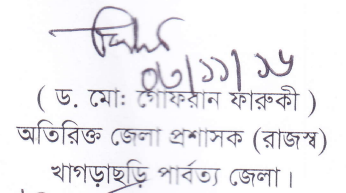 ০৩/১১/১৬
( ড. মোঃ গোফরান ফারুকী )
অতিরিক্ত জেলা প্রশাসক (রাজস্ব)
খাগড়াছড়ি পার্বত্য জেলা।